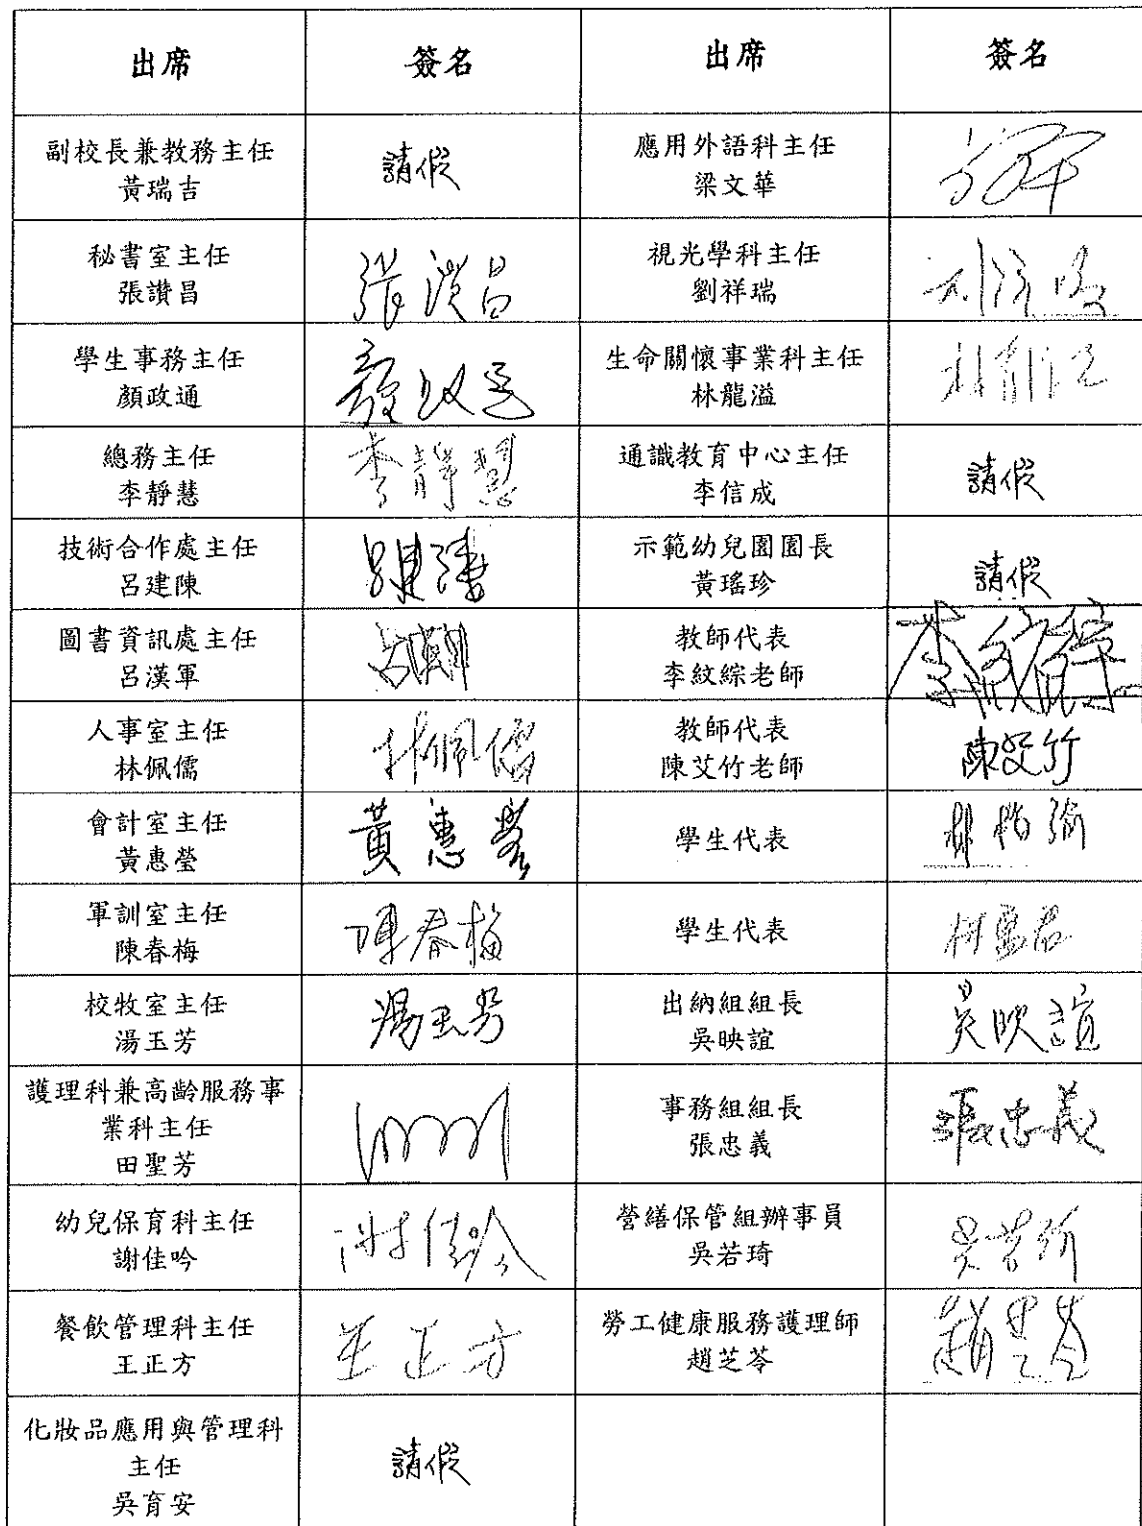 出席 簽名 出席 簽名
副校長兼教務主任
黃瑞吉
請假
應用外語科主任
梁文華
秘書室主任
張讚昌
張讚昌
視光學科主任
劉祥瑞
學生事務主任
顏政通
顏政通
生命關懷事業科主任
林龍溢
總務主任
李靜慧
李靜慧
通識教育中心主任
李信成
請假
技術合作處主任
呂建陳
示範幼兒園園長
黃瑤珍
請假
圖書資訊處主任
呂漢軍
教師代表
李紋綜老師
人事室主任
林佩儒
林佩儒
教師代表
陳艾竹老師
陳艾竹
會計室主任
黃惠瑩
黃惠瑩
學生代表
軍訓室主任
陳春梅
陳春梅
學生代表
校牧室主任
湯玉芳
湯玉芳
出納組組長
吳映誼
吳映誼
護理科兼高齡服務事
業科主任
田聖芳
事務組組長
張忠義
張忠義
幼兒保育科主任
謝佳吟
謝佳吟
營繕保管組辦事員
吳若琦
吳若琦
餐飲管理科主任
王正方
王正方
勞工健康服務護理師
趙芝苓
趙芝苓
化妝品應用與管理科
主任
吳育安
請假